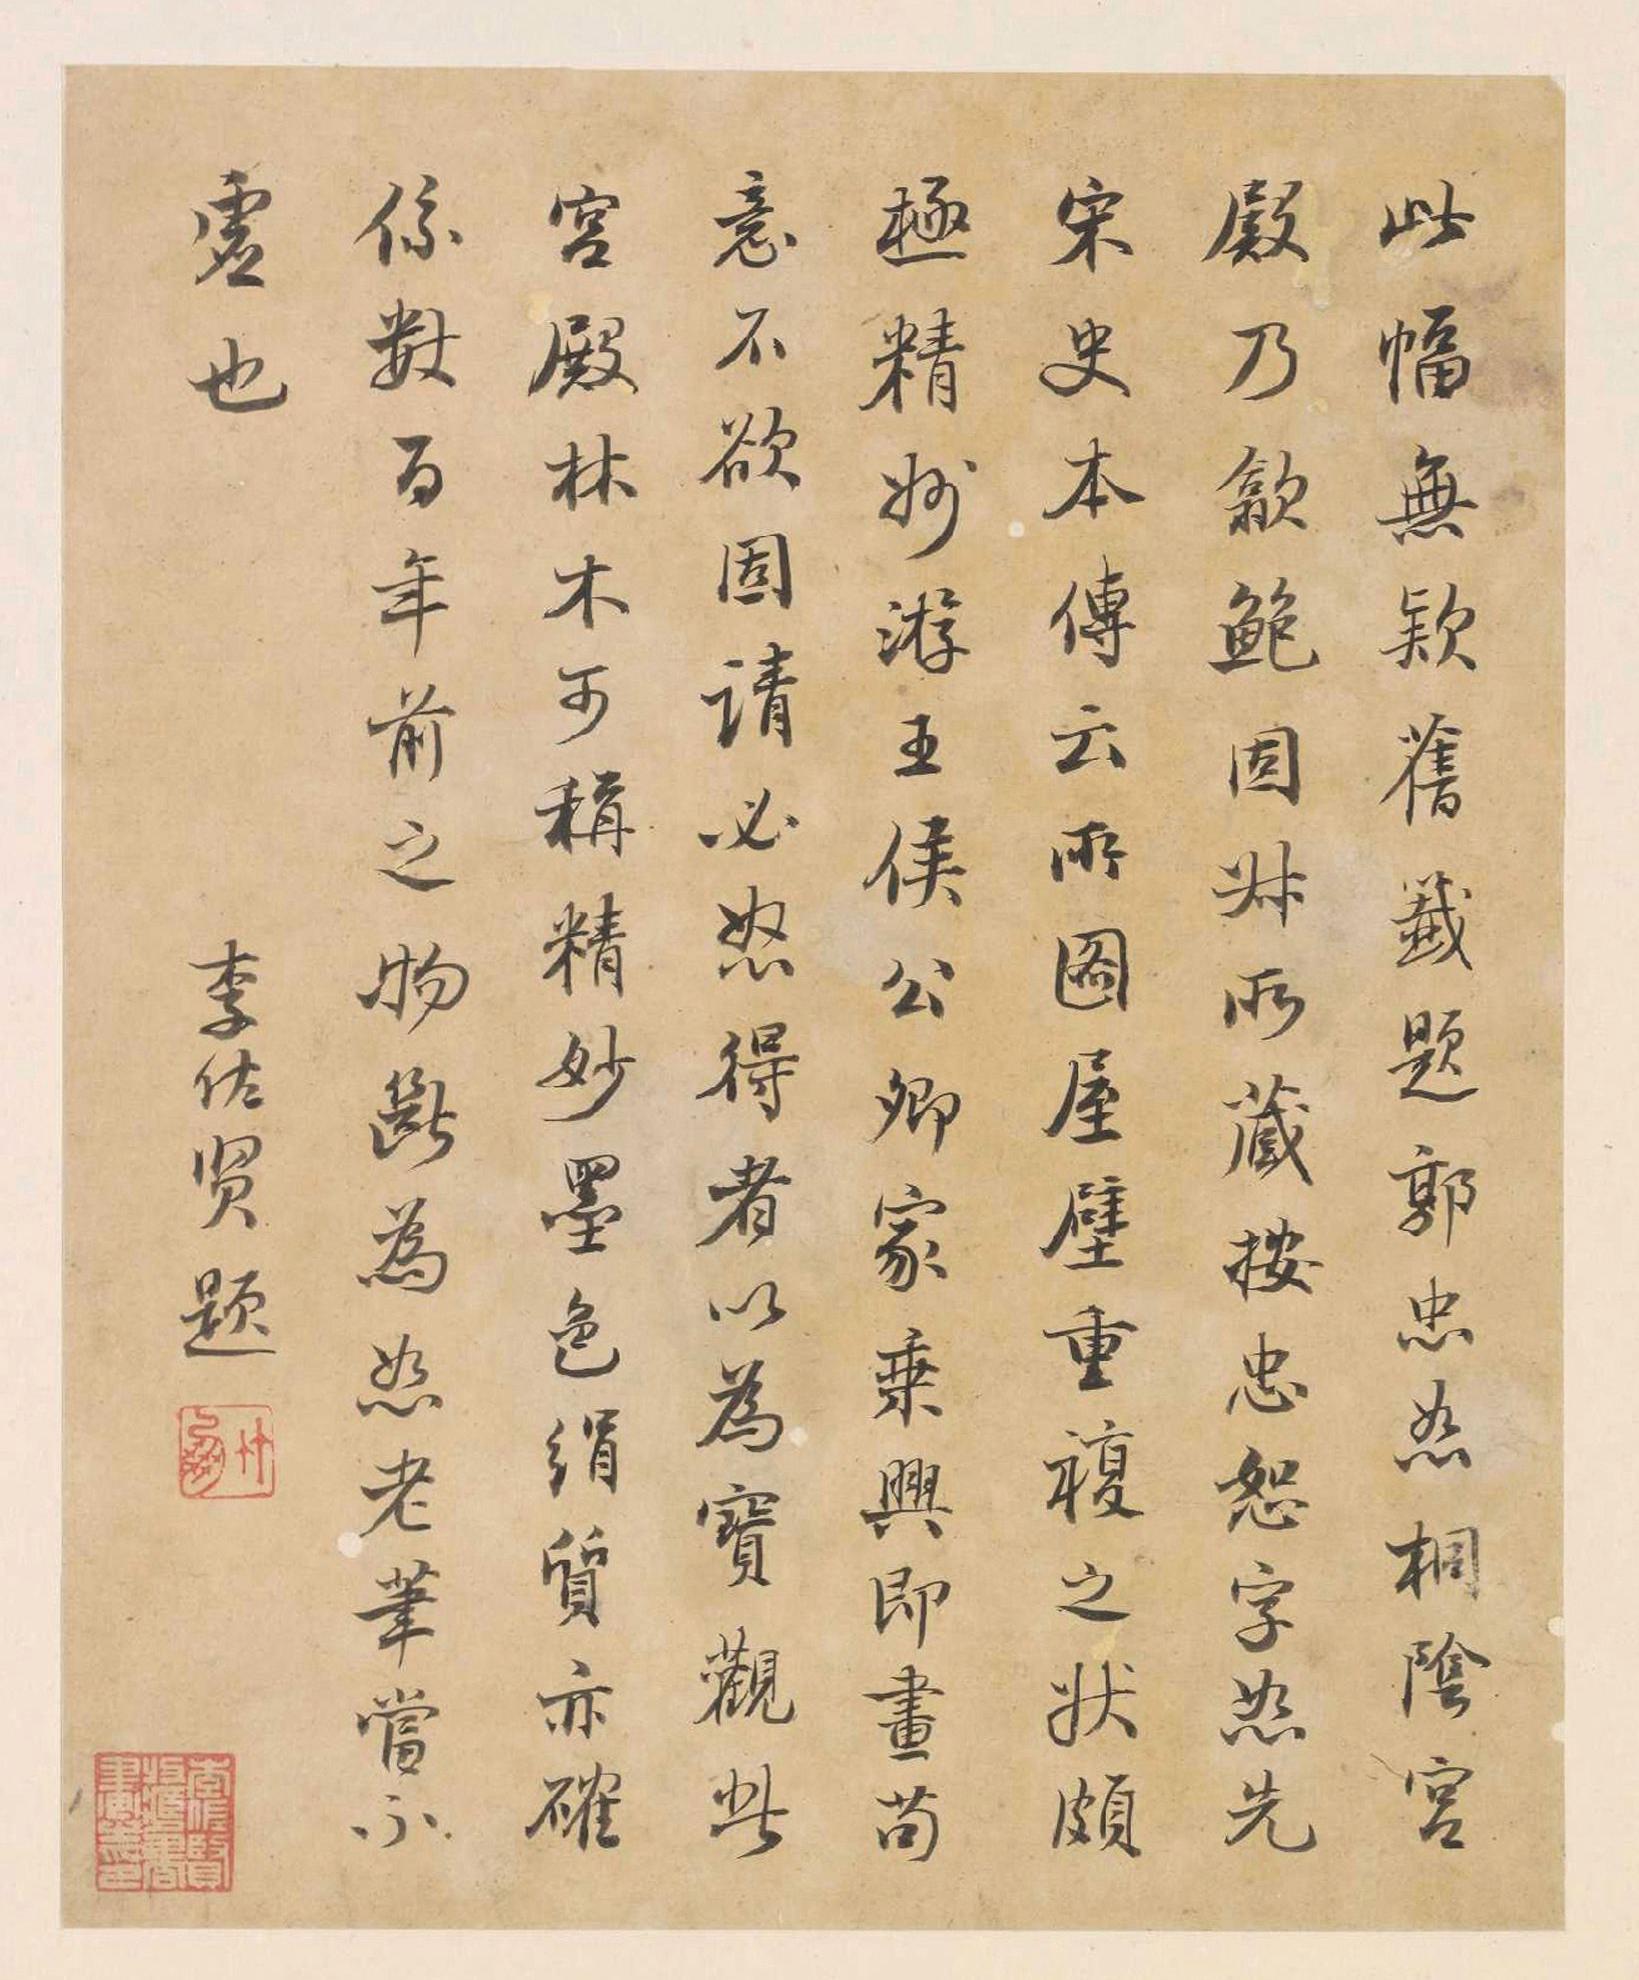 此幅無款舊籤題郭忠恕桐陰宮
殿乃歙鮑固叔所藏按忠恕字恕先
宋史本傳云所圖屋壁重複之狀頗
極精妙游王侯公卿家乗興即畫苟
意不欲固請必怒得者以為寶觀此
宮殿林木可稱精妙墨色絹質亦確
係數百年前之物斷為恕老筆當不
虛也
李佐賢題
竹朋
李佐賢收藏書畫之印